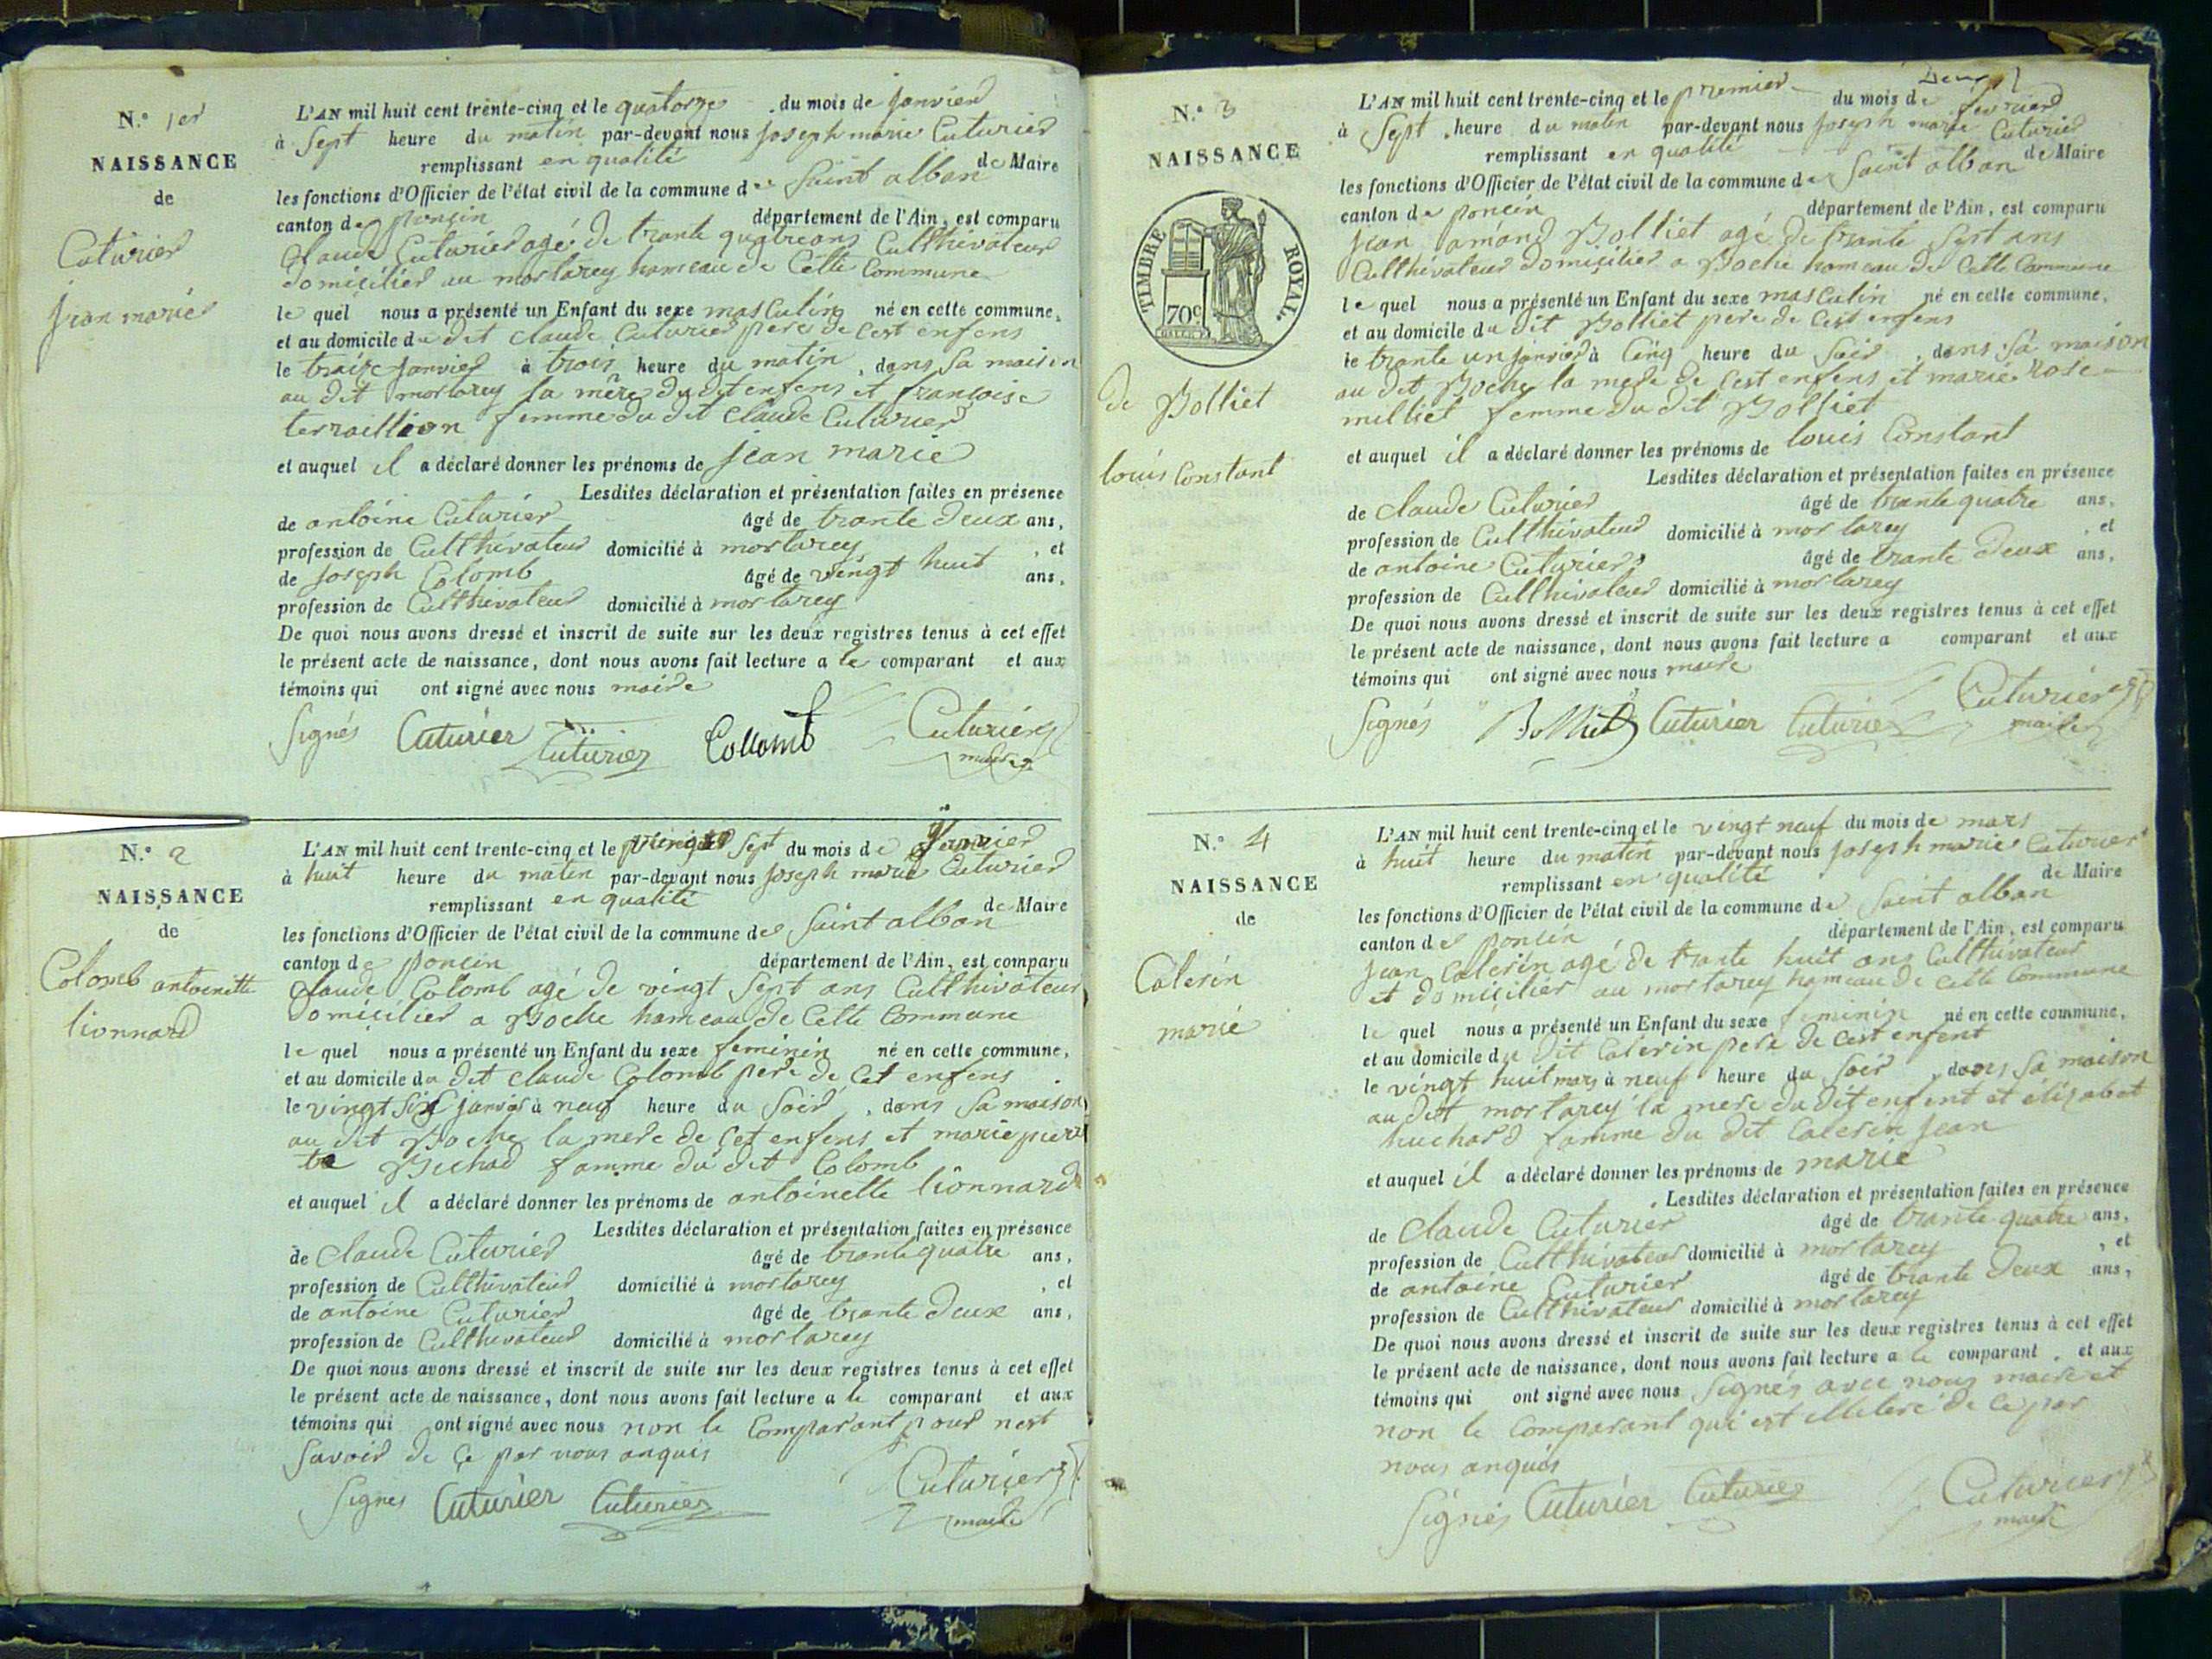 N.° 1er
NAISSANCE
de
Cuturier
jean marie
L'AN mil huit cent trente-cinq et le quatorze du mois de janvier
à Sept heure du matin par-devant nous joseph marie Cuturier
remplissant en qualité de Maire
les fonctions d'Officier de l'état civil de la commune de Saint alban
canton de poncin département de l'Ain, est comparu
Claude Cuturier agé de trante quatre ans Culthivateur
domicilier au mortarey hameau de Cette Commune
le quel nous a présenté un Enfant du sexe masculing né en cette commune,
et au domicile du dit claude Cuturier pere de Cest enfens
le traize janvier à trois heure du matin, dans Sa maison
au dit mortarey la mère du dit enfens et françoise
terraillion femme du dit Claude Cuturier
et auquel il a déclaré donner les prénoms de jean marie
Lesdites déclaration et présentation faites en présence
de antoine Cuturier âgé de trante deux ans,
profession de Culthivateur domicilié à mortarey, et
de joseph Colomb âgé de vingt huit ans,
profession de Culthivateur domicilié à mortarey
De quoi nous avons dressé et inscrit de suite sur les deux registres tenus à cet effet
le présent acte de naissance, dont nous avons fait lecture a le comparant et aux
témoins qui ont signé avec nous maire
Signés Cuturier Cuturier Collomb Cuturier
maire
N.° 2
NAISSANCE
de
Colomb antoinette
lionnard
L'AN mil huit cent trente-cinq et le vingt Sept du mois de janvier
à huit heure du matin par-devant nous joseph marie Cuturier
remplissant en qualité de Maire
les fonctions d'Officier de l'état civil de la commune de Saint alban
canton de poncin département de l'Ain, est comparu
Claude Colomb agé de vingt Sept ans Culthivateur
domicilier a Boche hameau de Cette Commune
le quel nous a présenté un Enfant du sexe feminin né en cette commune,
et au domicile du dit claude Colomb pere de Cet enfens
le vingt Six janvier à neuf heure du Soir, dans Sa maison
au dit Boche la mere de Cet enfens et marie pierre
te Bichad famme du dit Colomb
et auquel il a déclaré donner les prénoms de antoinette lionnard
Lesdites déclaration et présentation faites en présence
de Claude Cuturier âgé de trante quatre ans,
profession de Culthivateur domicilié à mortarey, et
de antoine Cuturier âgé de trante deux ans,
profession de Culthivateur domicilié à mortarey
De quoi nous avons dressé et inscrit de suite sur les deux registres tenus à cet effet
le présent acte de naissance, dont nous avons fait lecture a le comparant et aux
témoins qui ont signé avec nous non le Comparant pour nest
Savoir de Ce par nous anquis
Signes Cuturier Cuturier Cuturier
maire
N.° 3
NAISSANCE
TIMBRE ROYAL.
70c
de Bolliet
louis Constant
L'AN mil huit cent trente-cinq et le premier du mois de fevrier
à Sept heure du matin par-devant nous joseph marie Cuturier
remplissant en qualité de Maire
les fonctions d'Officier de l'état civil de la commune de Saint alban
canton de poncin département de l'Ain, est comparu
jean amand Bolliet agé de trante Sept ans
Culthivateur domicilier a Boche hameau de Cette Commune
le quel nous a présenté un Enfant du sexe masculin né en cette commune,
et au domicile du dit Bolliet pere de Cest enfens
le trante un janvier à Cinq heure du Soir, dans Sa maison
au dit Boche la mere de Cest enfens et marie rose
milliet femme du dit Bolliet
et auquel il a déclaré donner les prénoms de louis Constant
Lesdites déclaration et présentation faites en présence
de Claude Cuturier âgé de trante quatre ans,
profession de Cultthivateur domicilié à mortarey, et
de antoine Cuturier âgé de trante deux ans,
profession de Cullhivateur domicilié à mortarey
De quoi nous avons dressé et inscrit de suite sur les deux registres tenus à cet effet
le présent acte de naissance, dont nous avons fait lecture a comparant et aux
témoins qui ont signé avec nous maire
Signés Bolliet Cuturier Cuturier Cuturier
maire
N.° 4
NAISSANCE
de
Calerin
marie
L'AN mil huit cent trente-cinq et le vingt neuf du mois de mars
à huit heure du matin par-devant nous joseph marie Cuturier
remplissant en qualité de Maire
les fonctions d'Officier de l'état civil de la commune de Saint alban
canton de poncin département de l'Ain, est comparu
jean Calerin agé de trante huit ans Culthivateur
et domicilier au mortarey hameau de cette Commune
le quel nous a présenté un Enfant du sexe feminin né en cette commune,
et au domicile du dit Calerin pere de Cest enfent
le vingt huit mars à neuf heure du Soir, dans Sa maison
au dit mortarey la mere du dit enfent et élizabet
huchard famme du dit Calerin jean
et auquel il a déclaré donner les prénoms de marie
Lesdites déclaration et présentation faites en présence
de Claude Cuturier âgé de trante quatre ans,
profession de Culthivateur domicilié à mortarey, et
de antoine Cuturier âgé de trante deux ans,
profession de Culthivateur domicilié à mortarey
De quoi nous avons dressé et inscrit de suite sur les deux registres tenus à cet effet
le présent acte de naissance, dont nous avons fait lecture a le comparant et aux
témoins qui ont signé avec nous Signés avec nous maire et
non le Comparant qui est illeteré de Ce par
nous anquis
Signés Cuturier Cuturier Cuturier
maire